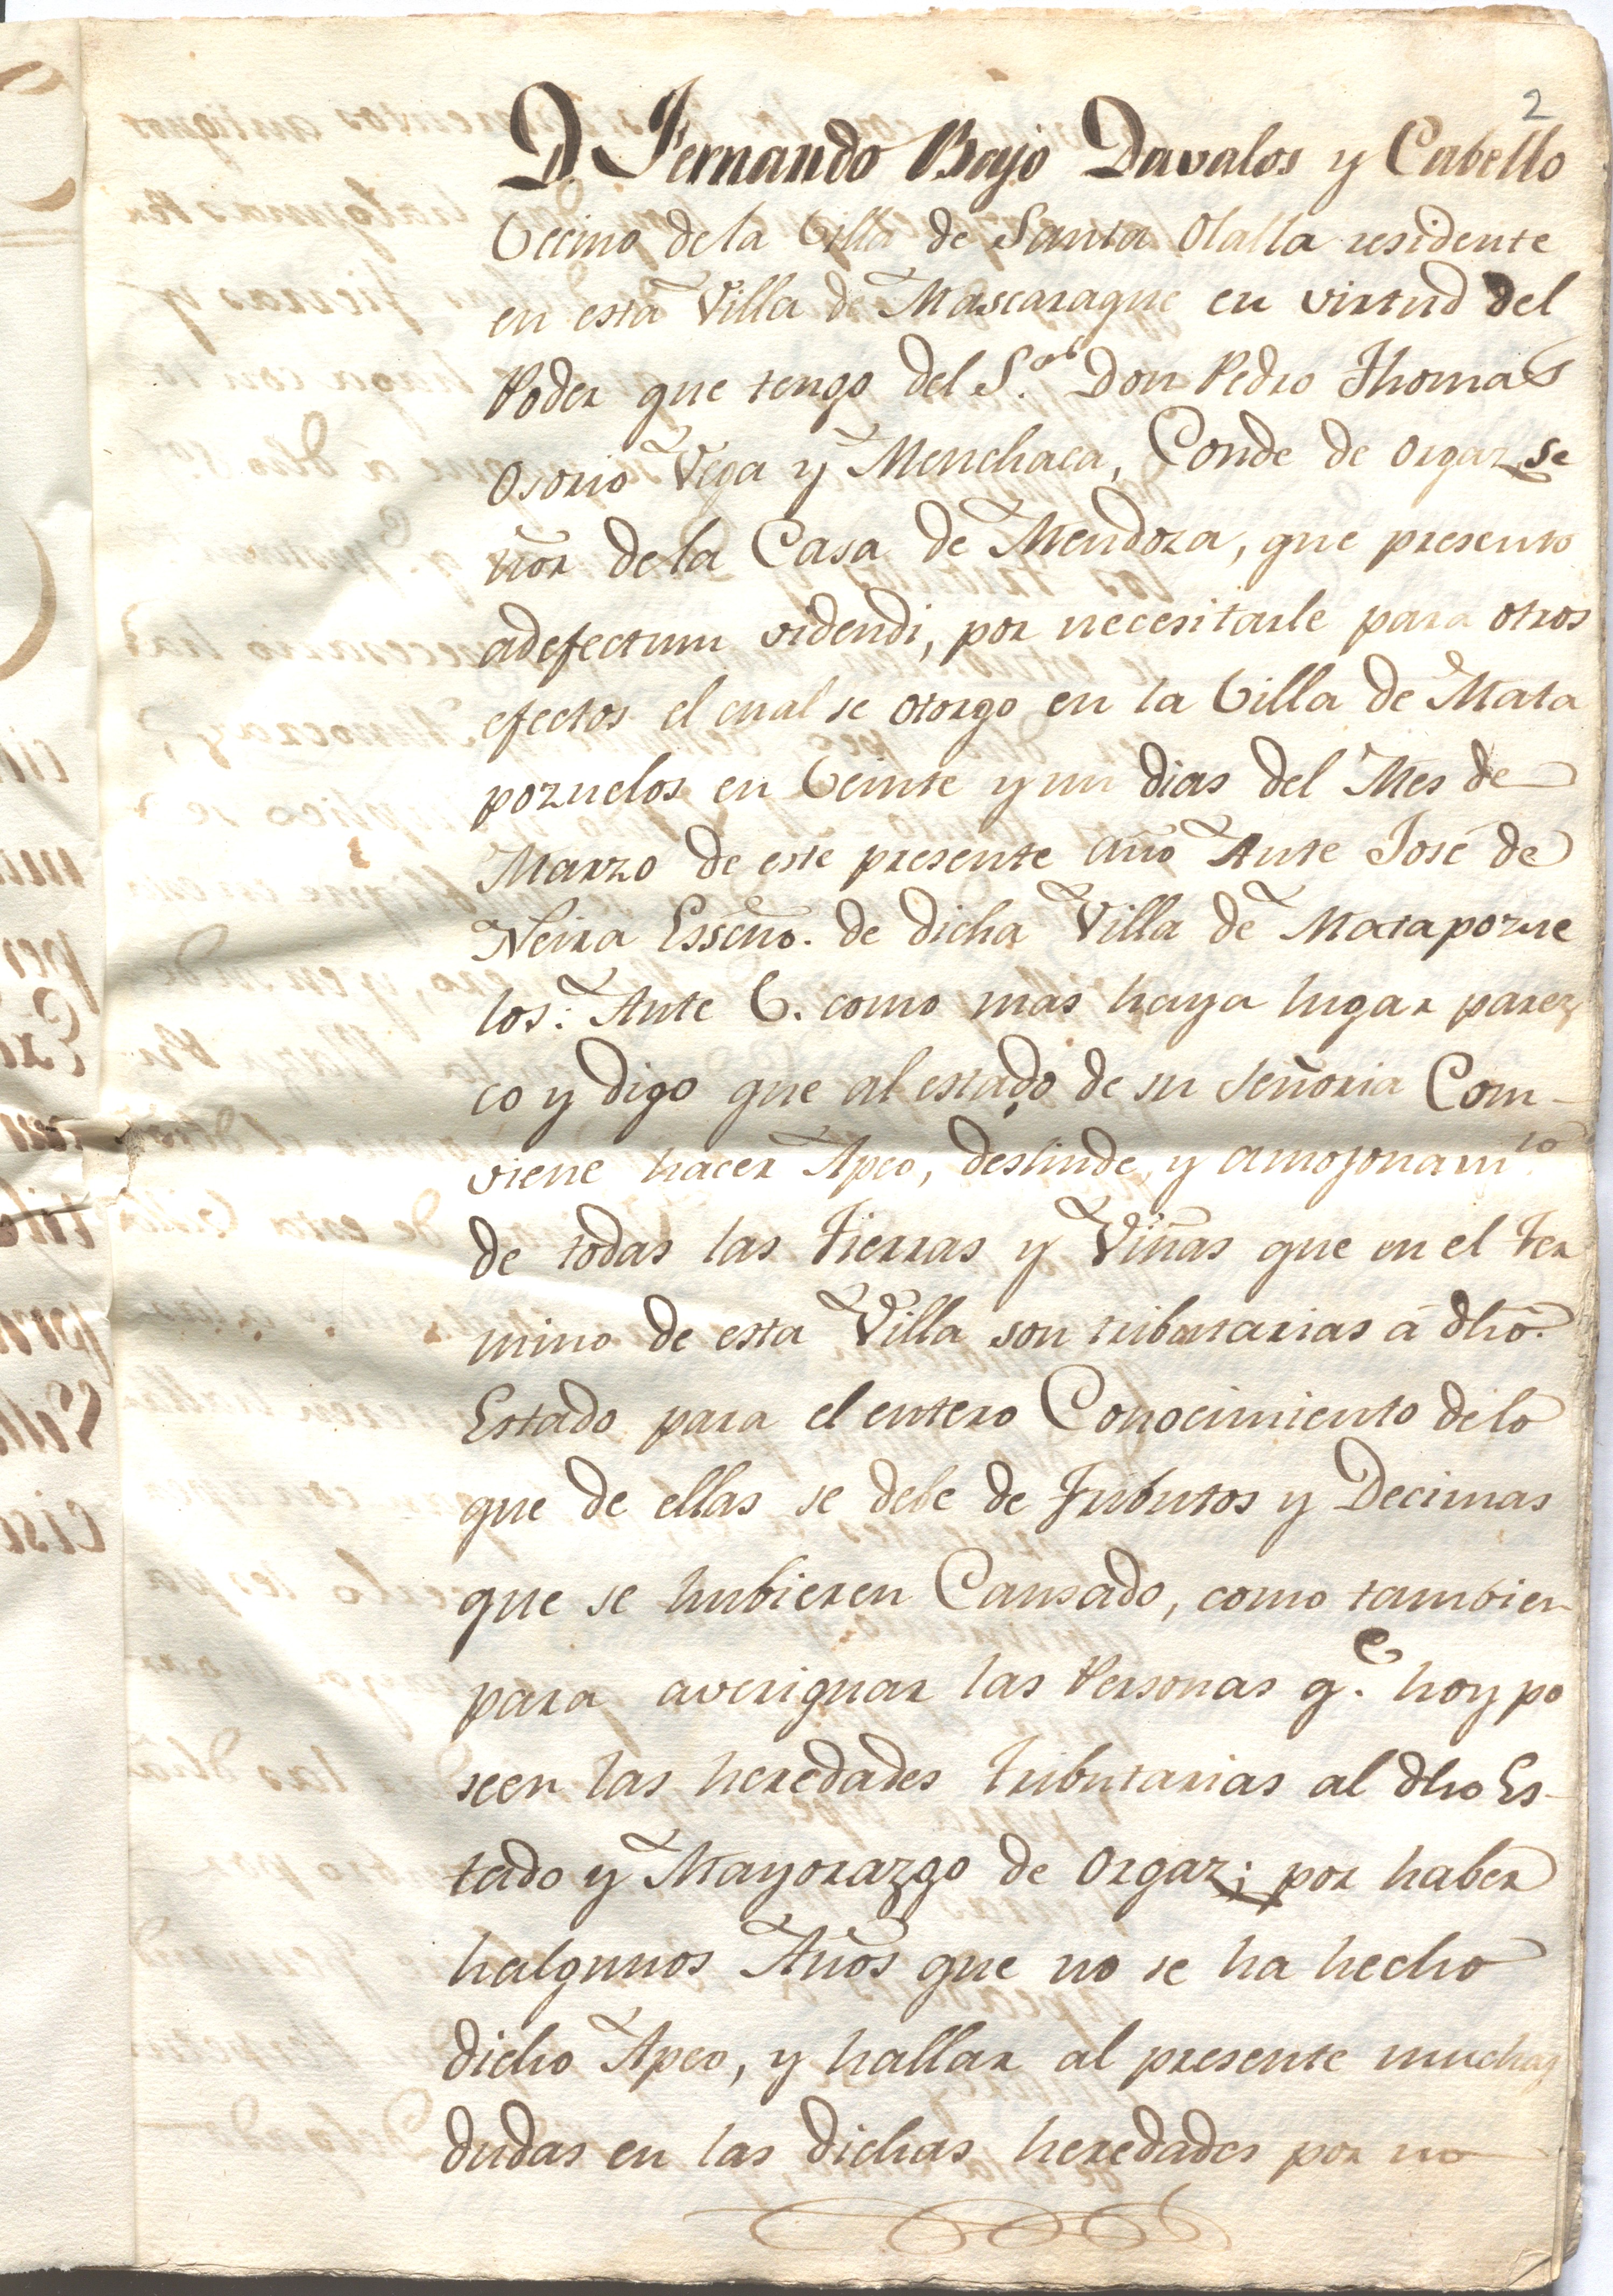 2
D. Fernando Bajo Davalos y Cabello
Vecino de la Villa de Santa Olalla residente
en esta Villa de Mascaraque en virtud del
Poder que tengo del S.or Don Pedro Thomas
Osorio Vega y Menchaca, Conde de Orgaz, se
ñor de la Casa de Mendoza, que presento
adefectum videndi, por necesitarle para otros
efectos el cual se otorgo en la Villa de Mata
pozuelos en Veinte y un dias del Mes de
Marzo de este presente año Ante José de
Neira Essno. de dicha Villa de Matapozue
los: Ante V. como mas haya lugar parez
co y digo que al estado de su señoria Com-
viene hacer Apeo, deslinde, y amojonam.to
de todas las tierras y Viñas que en el ter
mino de esta Villa son tributarias á dho.
Estado para el entero Conocimiento de lo
que de ellas se debe de tributos y Decimas
que se hubieren Causado, como tambien
para averiguar las Personas q.e hoy po
seen las heredades tributarias al dho Es-
tado y Mayorazgo de Orgaz; por haber
halgunos Años que no se ha hecho
dicho Apeo, y hallar al presente muchas
dudas en las dichas heredades por no